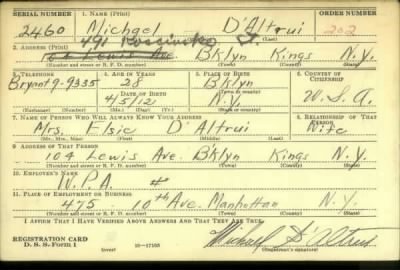 SERIAL NUMBER 1. NAME (Print) ORDER NUMBER
2460 Michael D'Altrui 202
(First) (Middle) (Last)
491
2. ADDRESS (Print)
104 Lewis Ave Bklyn Kings N.Y.
(Number and street or R. F. D. number) (Town) (County) (State)
3. TELEPHONE 4. AGE IN YEARS 5. PLACE OF BIRTH 6. COUNTRY OF CITIZENSHIP
Bryant 9-9335 28 Bklyn
DATE OF BIRTH
4/5/12 N.Y. U.S.A.
(Exchange) (Number) (Mo.) (Day) (Yr.) (State or country)
7. NAME OF PERSON WHO WILL ALWAYS KNOW YOUR ADDRESS 8. RELATIONSHIP OF THAT PERSON
Mrs. Elsie D'Altrui Wife
(Mr., Mrs., Miss) (First) (Middle) (Last)
9. ADDRESS OF THAT PERSON
104 Lewis Ave. B'klyn Kings N.Y.
(Number and street or R. F. D. number) (Town) (County) (State)
10. EMPLOYER'S NAME
W.P.A.
11. PLACE OF EMPLOYMENT OR BUSINESS
475 10th Ave. Manhattan N.Y.
(Number and street or R. F. D. number) (Town) (County) (State)
I AFFIRM THAT I HAVE VERIFIED ABOVE ANSWERS AND THAT THEY ARE TRUE.
REGISTRATION CARD
D. S. S. Form 1 (over) 16—17105 Michael D'Altrui
(Registrant's signature)